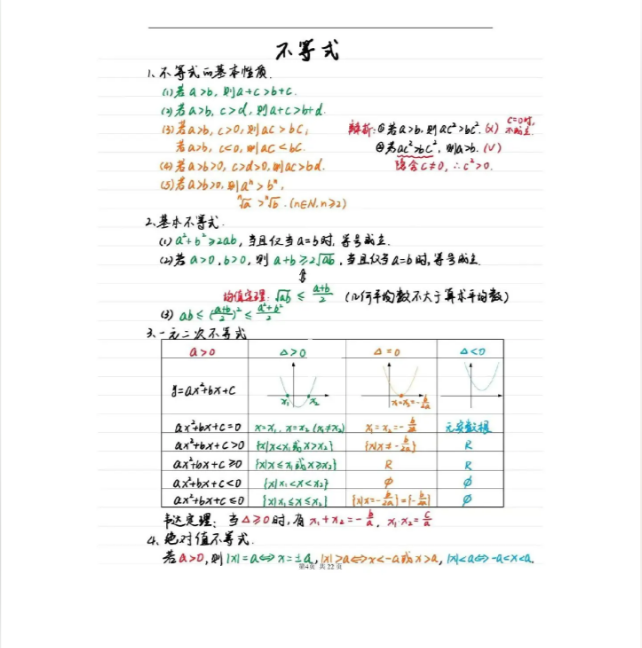 不等式
1、不等式的基本性质.
(1)若a>b, 则a+c>b+c.
(2)若a>b, c>d, 则a+c>b+d.
(3)若a>b, c>0, 则ac>bc, 辨析:①若a>b, 则ac²>bc². (×) c=0时, 不成立
若a>b, c<0, 则ac<bc. ②若ac²>bc², 则a>b. (√)
(4)若a>b>0, c>d>0, 则ac>bd. 隐含c≠0, ∴c²>0.
(5)若a>b>0, 则aⁿ>bⁿ,
ⁿ√a>ⁿ√b. (n∈N, n≥2)
2、基本不等式.
(1) a²+b²≥2ab, 当且仅当a=b时, 等号成立.
(2)若a>0, b>0, 则a+b≥2√ab, 当且仅当a=b时, 等号成立.
⇕
均值定理: √ab ≤ (a+b)/2 (几何平均数不大于算术平均数)
(3) ab≤((a+b)/2)²≤(a²+b²)/2
3、一元二次不等式
a>0 △>0 △=0 △<0
y=ax²+bx+c x₁ x₂ x₁=x₂=-b/2a
ax²+bx+c=0 x=x₁, x=x₂ (x₁≠x₂) x₁=x₂=-b/2a 无实数根
ax²+bx+c>0 {x|x<x₁或x>x₂} {x|x≠-b/2a} R
ax²+bx+c≥0 {x|x≤x₁或x≥x₂} R R
ax²+bx+c<0 {x|x₁<x<x₂} ∅ ∅
ax²+bx+c≤0 {x|x₁≤x≤x₂} {x|x=-b/2a}={-b/2a} ∅
韦达定理: 当△≥0时, 有x₁+x₂=-b/a, x₁x₂=c/a
4、绝对值不等式.
若a>0, 则|x|=a⇔x=±a, |x|>a⇔x<-a或x>a, |x|<a⇔-a<x<a
第4页 共22页